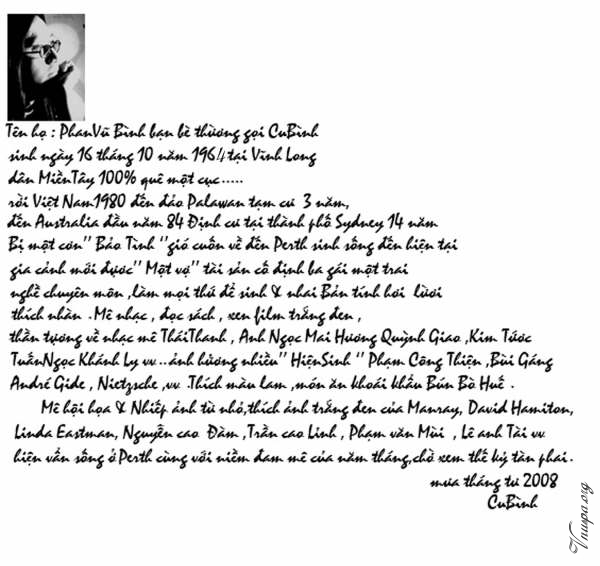 Tên họ : PhanVũ Bình bạn bè thường gọi CuBình
sinh ngày 16 tháng 10 năm 1964 tại Vĩnh Long
dân MiềnTây 100% quê một cục.....
rời Việt Nam1980 đến đảo Palawan tạm cư 3 năm,
đến Australia đầu năm 84 Định cư tại thành phố Sydney 14 năm
Bị một cơn" Bảo Tình "gió cuốn về đến Perth sinh sống đến hiện tại
gia cảnh mới được" Một vợ" tài sản cố định ba gái một trai
nghề chuyên môn ,làm mọi thứ để sinh & nhai Bản tính hơi lười
thích nhàn .Mê nhạc , đọc sách , xen film trắng đen ,
thần tượng về nhạc mê TháiThanh , Anh Ngọc Mai Hương Quỳnh Giao ,Kim Tước
TuấnNgọc Khánh Ly vv...ảnh hưởng nhiều" HiệnSinh " Phạm Công Thiện ,Bùi Gáng
André Gide , Nietzsche ,vv .Thích màu lam ,món ăn khoái khẩu Bún Bò Huế .
Mê hội họa & Nhiếp ảnh từ nhỏ,thích ảnh trắng đen của Manray, David Hamiton,
Linda Eastman, Nguyễn cao Đàm ,Trần cao Linh , Phạm văn Mùi , Lê anh Tài vv
hiện vẫn sống ở Perth cùng với niềm đam mê của năm tháng,chờ xem thế kỷ tàn phai .
mưa tháng tư 2008
CuBình
Vnuspa.org